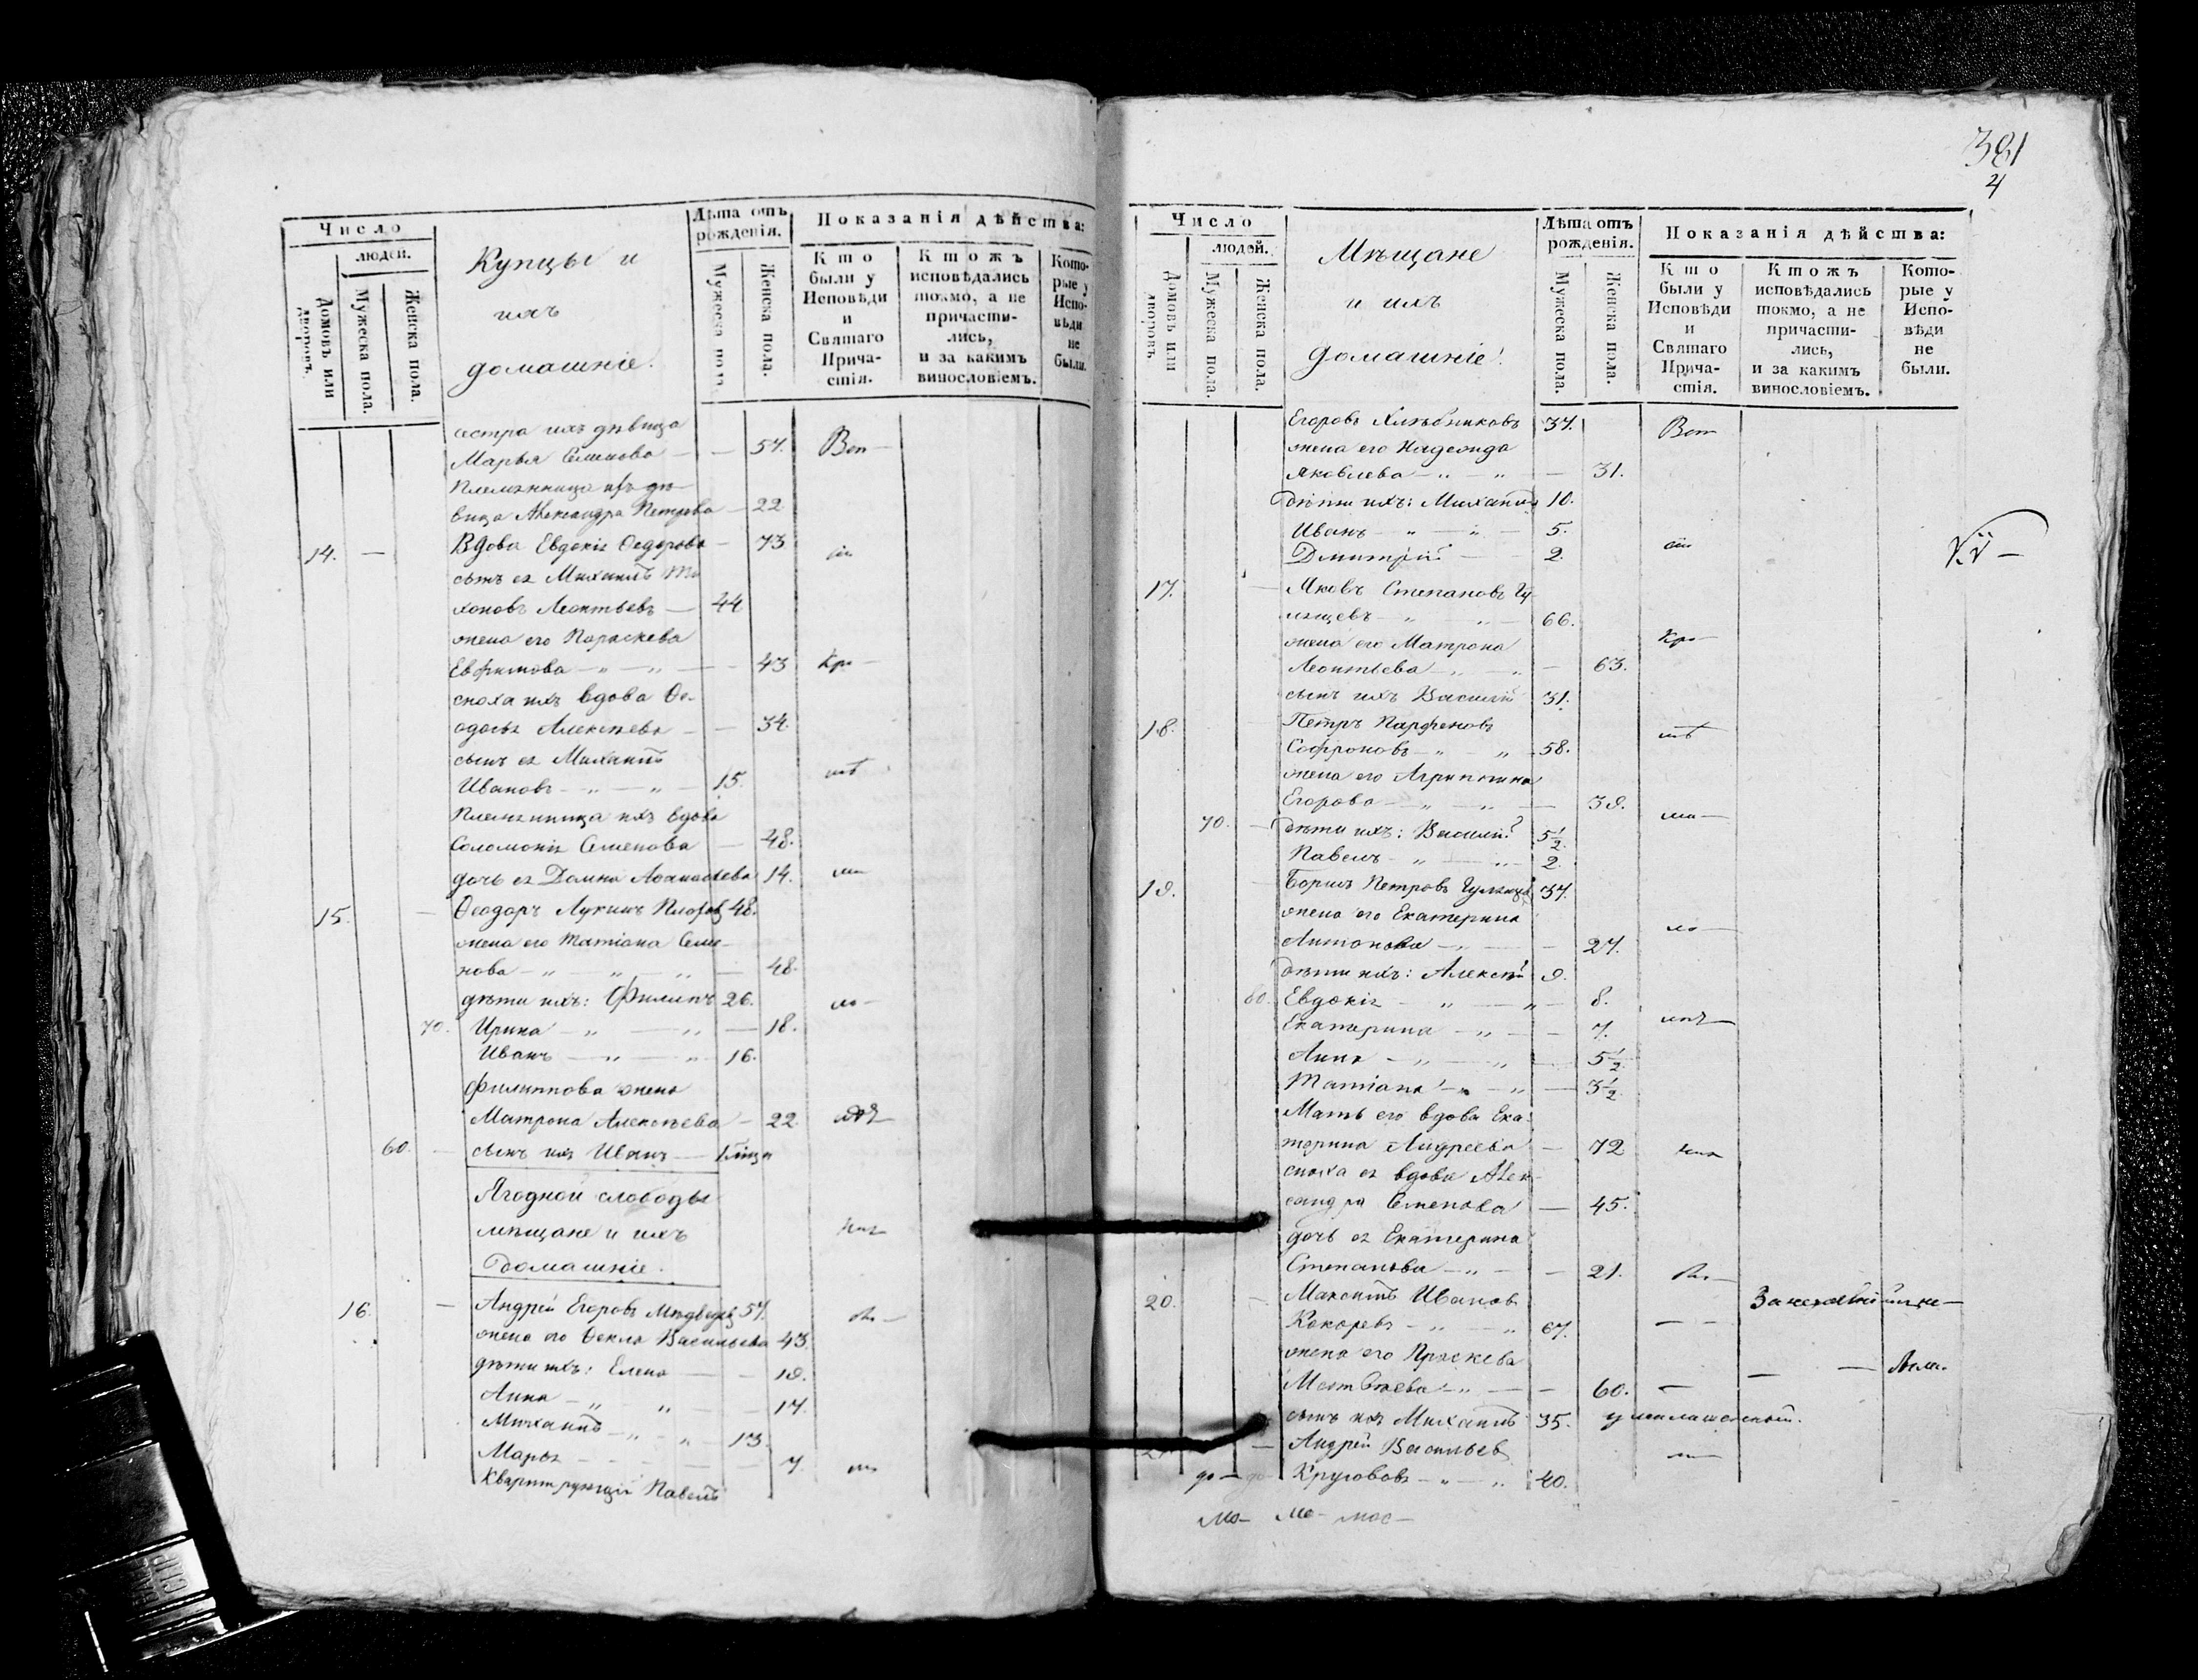 Число
людей.
Домовъ или дворовъ.
Мужеска пола.
Женска пола.
Купцы и
ихъ
домашніе.
Лѣта отъ
рожденія.
Мужеска пола.
Женска пола.
Показанія дѣйства:
Кто
были у
Исповѣди
и
Святаго
Прича-
стія.
Ктожъ
исповѣдались
токмо, а не
причасти-
лись,
и за какимъ
винословіемъ.
Кото-
рые у
Испо-
вѣди
не
были.
сестра ихъ дѣвица
Марья Семенова — — 57.
Племянница ихъ дѣ-
вица Александра Петрова — 22
14. — Вдова Евдокія Федорова — 73
сынъ ея Михаилъ Ти
хоновъ Леонтьевъ — 44
жена его Параскева
Евфимова — „ — „ — 43
сноха ихъ вдова Ѳе-
одосья Алексѣева — — 34.
сынъ ея Михаилъ
Ивановъ — „ — „ — 15.
Племянница ихъ вдова
Соломонія Семенова — 48.
дочь ея Домна Аѳанасьева 14.
15. — Ѳеодоръ Лукинъ 48.
жена его Татіана Семе-
нова — „ — „ — „ — 48.
дѣти ихъ: Филипъ 26.
70. Ирина — „ — „ — 18.
Иванъ — „ — „ — 16.
Филиппова жена
Матрона Алексѣева — 22.
60. — сынъ ихъ Иванъ —
Ягодной слободы
мѣщане и ихъ
домашніе.
16. — Андрей Егоровъ 57.
жена его Ѳекла Васильева 43.
дѣти ихъ: Елена — — 19.
Анна — „ — „ — — 17.
Михаилъ — „ — „ — 13.
Марья — — — 7.
Квартирующій Павелъ
381
4
Число
людей.
Домовъ или дворовъ.
Мужеска пола.
Женска пола.
Мѣщане
и ихъ
домашніе.
Лѣта отъ
рожденія.
Мужеска пола.
Женска пола.
Показанія дѣйства:
Кто
были у
Исповѣди
и
Святаго
Прича-
стія.
Ктожъ
исповѣдались
токмо, а не
причасти-
лись,
и за какимъ
винословіемъ.
Кото-
рые у
Испо-
вѣди
не
были.
Егоровъ Хлѣбниковъ 37.
жена его Надежда
Яковлева — „ — „ — 31.
Дѣти ихъ: Михаилъ 10.
Иванъ — „ — „ — 5.
Дмитрій — — 2.
17. — Яковъ Степановъ Гу-
66.
жена его Матрона
Леонтьева — „ — „ — 63.
сынъ ихъ Василій 31.
18. Петръ Парфеновъ
Софроновъ — „ — „ — 58.
жена его Агрипина
Егорова — „ — „ — 39.
70. — дѣти ихъ: Василій 5 1/2.
Павелъ — „ — „ — 2.
19. — Борисъ Петровъ 37.
жена его Екатерина
Антонова — „ — — 27.
дѣти ихъ: Алексѣй 9.
80. Евдокія — „ — „ — 8.
Екатерина — „ — — 7.
Анна — „ — „ — 5 1/2.
Татіана — „ — „ — 3 1/2.
Мать его вдова Ека-
терина Андреева — 72
сноха ея вдова Алек-
сандра Семенова — 45.
дочь ея Екатерина
Степанова — „ — — 21.
20. — Максимъ Ивановъ
Кокоревъ — „ — „ 67.
жена его Праскева
Матвѣева — „ — — 60. —
сынъ ихъ Михаилъ 35.
21. — Андрей Васильевъ
Круговъ — „ — „ 40.